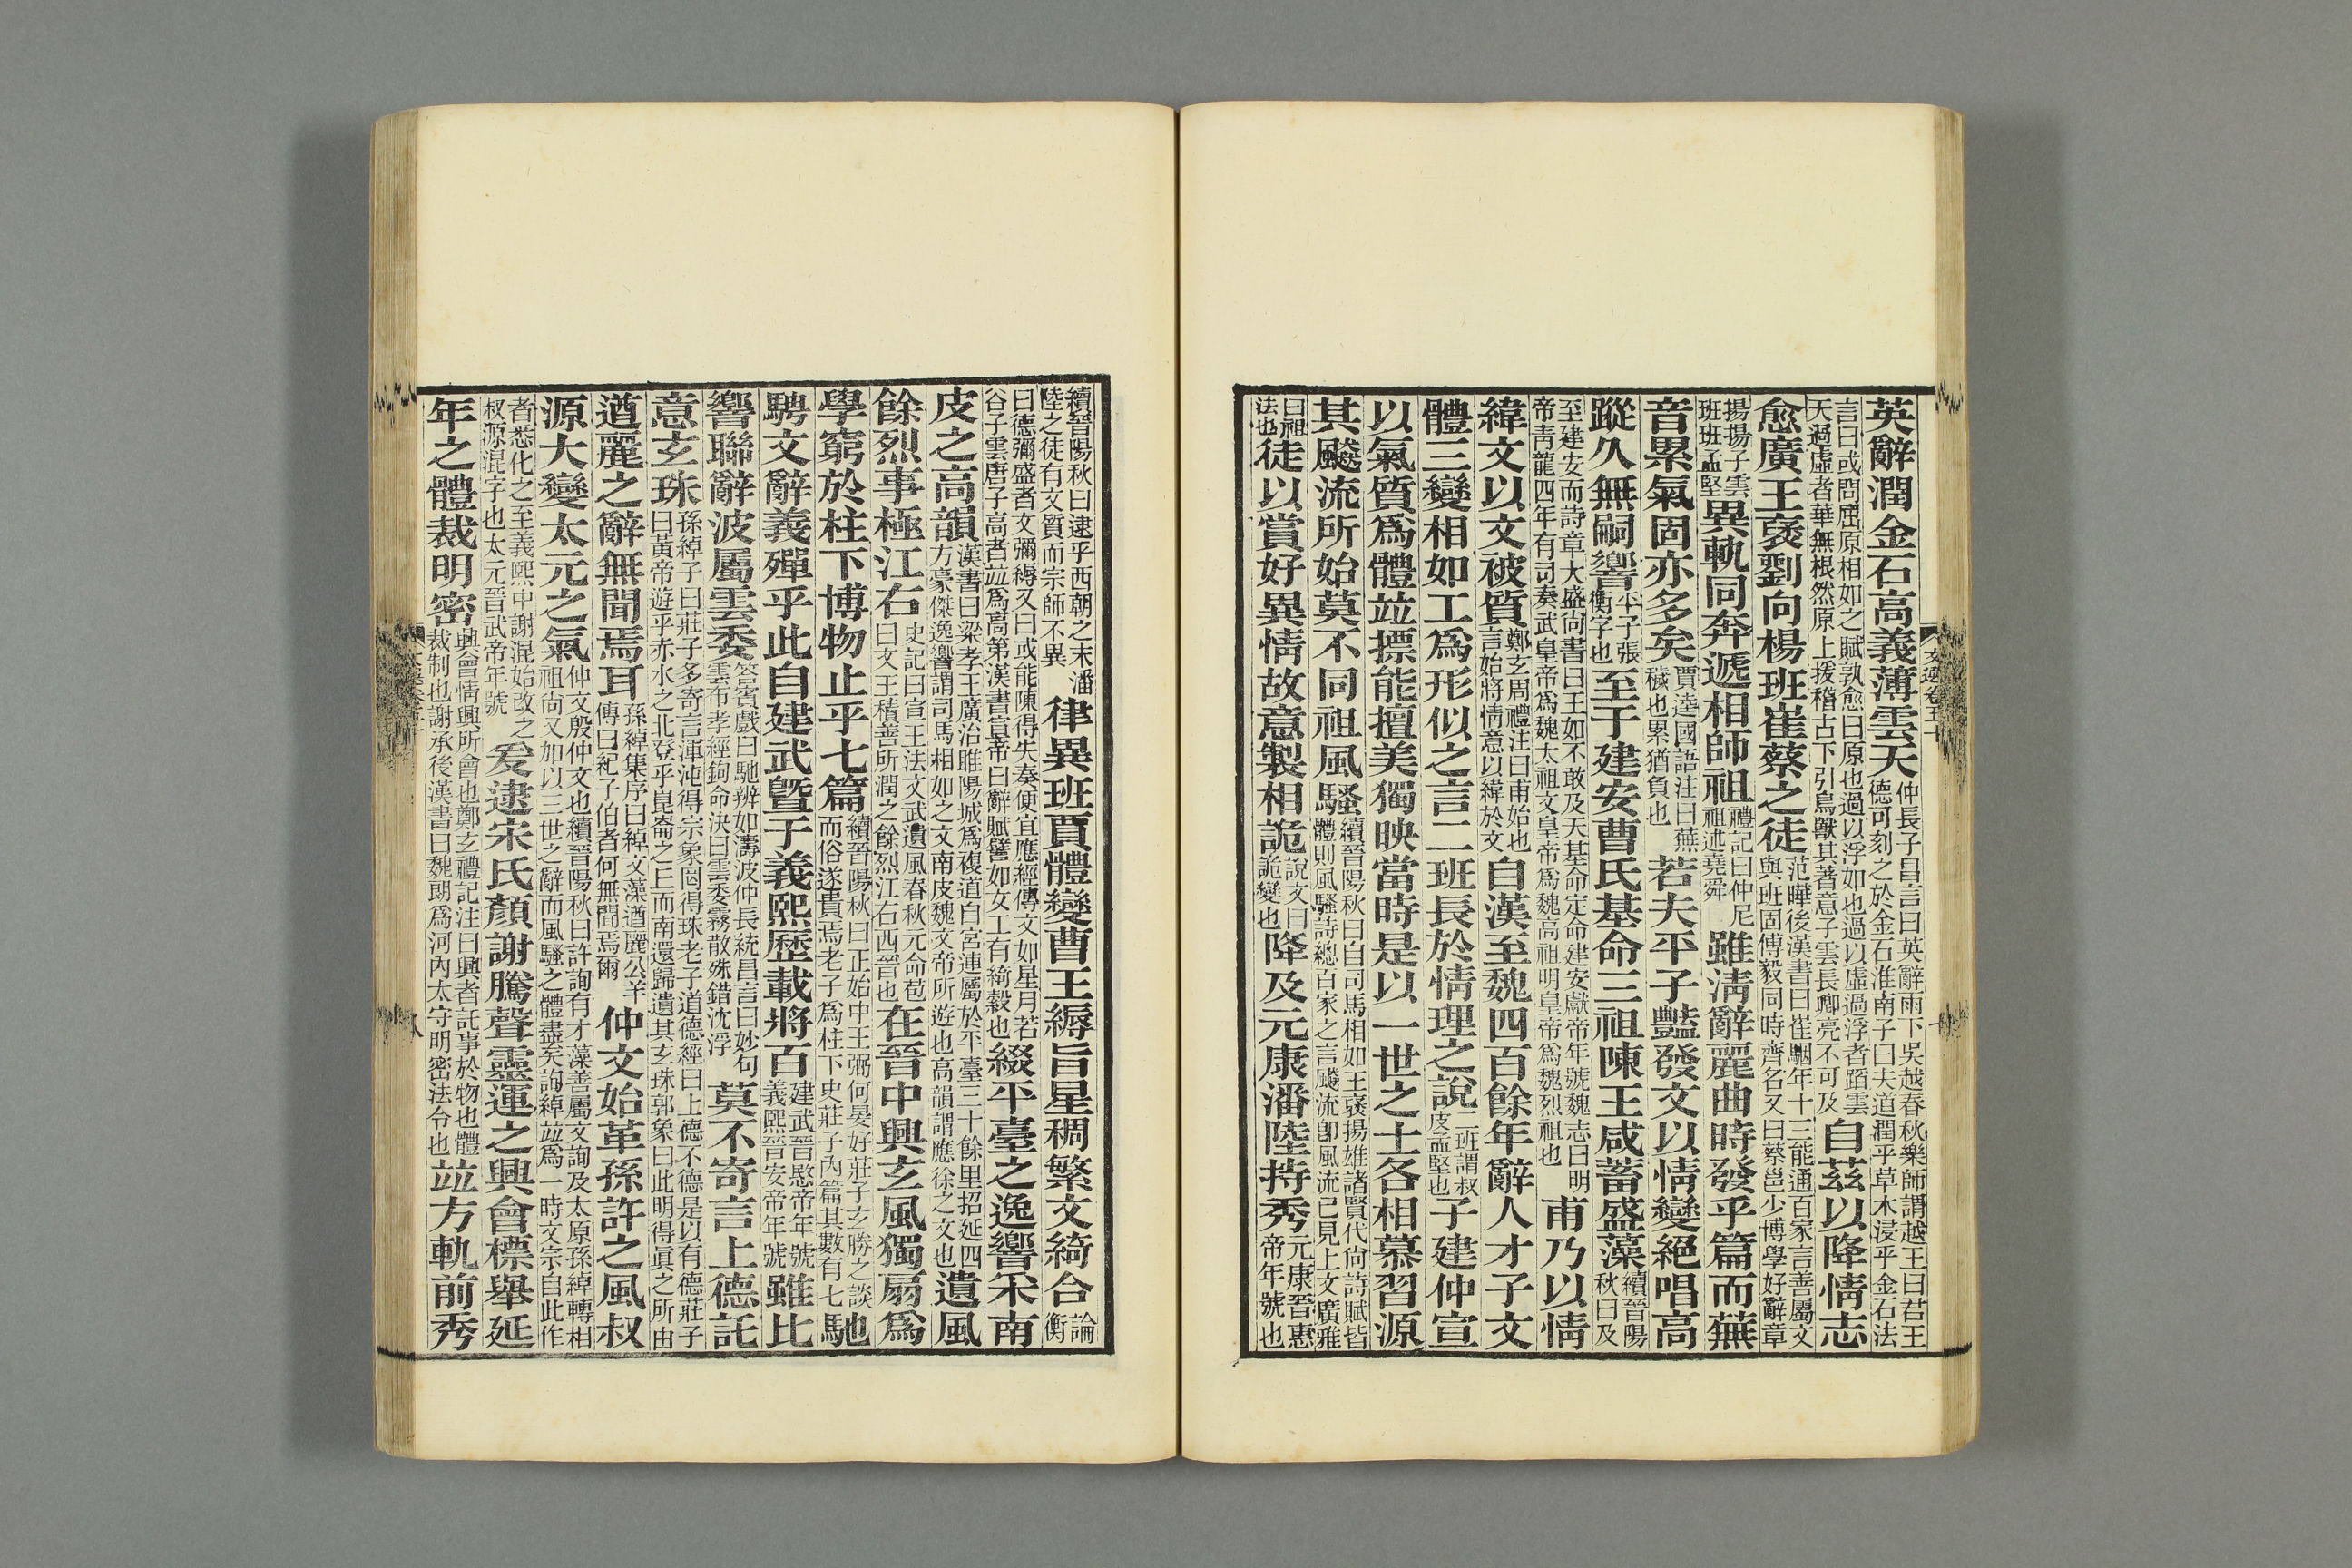 英辭潤金石高義薄雲天仲長子昌言曰英辭雨下吳越春秋樂師謂越王曰君王德可刻之於金石淮南子曰大道潤乎草木浸乎金石法
言曰或問屈原相如之賦孰愈曰原也過以浮如也過以虛過浮者蹈雲天過虛者華無根然原上援稽古下引鳥獸其著意子雲長卿亮不可及自茲以降情志
愈廣王襃劉向楊班崔蔡之徒范曄後漢書曰崔駰年十三能通百家言善屬文與班固傅毅同時齊名又曰蔡邕少博學好辭章
揚揚子雲班班孟堅異軌同奔遞相師祖禮記曰仲尼祖述堯舜雖清辭麗曲時發乎篇而蕪
音累氣固亦多矣賈逵國語注曰蕪穢也累猶負也若夫平子豔發文以情變絕唱高
蹤久無嗣響平子張衡字也至于建安曹氏基命三祖陳王咸蓄盛藻續晉陽秋曰及
至建安而詩章大盛尙書曰王如不敢及天基命定命建安獻帝年號魏志曰明帝靑龍四年有司奏武皇帝爲魏太祖文皇帝爲魏高祖明皇帝爲魏烈祖也甫乃以情
緯文以文被質鄭玄周禮注曰甫始也言始將情意以緯於文自漢至魏四百餘年辭人才子文
體三變相如工爲形似之言二班長於情理之說二班謂叔皮孟堅也子建仲宣
以氣質爲體並摽能擅美獨映當時是以一世之士各相慕習源
其飈流所始莫不同祖風騷續晉陽秋曰自司馬相如王襃揚雄諸賢代尙詩賦皆體則風騷詩總百家之言飈流卽風流已見上文廣雅
曰祖法也徒以賞好異情故意製相詭說文曰詭變也降及元康潘陸持秀元康晉惠帝年號也
續晉陽秋曰逮乎西朝之末潘陸之徒有文質而宗師不異律異班賈體變曹王縟旨星稠繁文綺合論衡
曰德彌盛者文彌縟又曰或能陳得失奏便宜應經傳文如星月若谷子雲唐子高者並爲高第漢書宣帝曰辭賦譬如女工有綺縠也綴平臺之逸響宋南
皮之高韻漢書曰梁孝王廣治睢陽城爲複道自宮連屬於平臺三十餘里招延四方豪傑逸響謂司馬相如之文南皮魏文帝所遊也高韻謂應徐之文也遺風
餘烈事極江右史記曰宣王法文武遺風春秋元命苞曰文王積善所潤之餘烈江右西晉也在晉中興玄風獨扇爲
學窮於柱下博物止乎七篇續晉陽秋曰正始中王弼何晏好莊子玄勝之談而俗遂貴焉老子爲柱下史莊子內篇其數有七馳
騁文辭義殫乎此自建武暨于義熙歷載將百建武晉愍帝年號義熙晉安帝年號雖比
響聯辭波屬雲委答賓戲曰馳辨如濤波仲長統昌言曰妙句雲布孝經鉤命決曰雲委霧散殊錯沈浮莫不寄言上德託
意玄珠孫綽子曰莊子多寄言渾沌得宗象罔得珠老子道德經曰上德不德是以有德莊子曰黃帝遊乎赤水之北登乎崑崙之丘而南還歸遺其玄珠郭象曰此明得眞之所由
遒麗之辭無聞焉耳孫綽集序曰綽文藻遒麗公羊傳曰紀子伯者何無聞焉爾仲文始革孫許之風叔
源大變太元之氣仲文殷仲文也續晉陽秋曰許詢有才藻善屬文詢及太原孫綽轉相祖尙又加以三世之辭而風騷之體盡矣詢綽並爲一時文宗自此作
者悉化之至義熙中謝混始改之叔源混字也太元晉武帝年號爰逮宋氏顏謝騰聲靈運之興會標舉延
年之體裁明密興會情興所會也鄭玄禮記注曰興者託事於物也體裁制也謝承後漢書曰魏朗爲河內太守明密法令也並方軌前秀